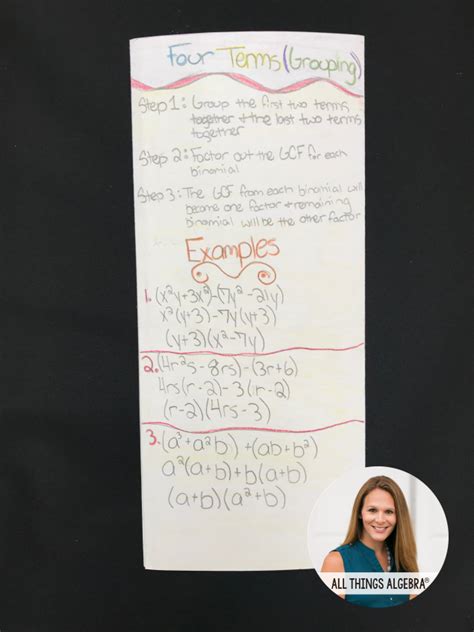 Four Terms (Grouping)
Step 1: Group the first two terms
together + the last two terms
together
Step 2: Factor out the GCF for each
binomial
Step 3: The GCF from each binomial will
become one factor + remaining
binomial will be the other factor
Examples
1. (x²y+3x²)-(7y²-21y)
x²(y+3)-7y(y+3)
(y+3)(x²-7y)
2. (4r²s-8rs)-(3r+6)
4rs(r-2)-3(r-2)
(r-2)(4rs-3)
3. (a³+a²b)+(ab+b²)
a²(a+b)+b(a+b)
(a+b)(a²+b)
ALL THINGS ALGEBRA®